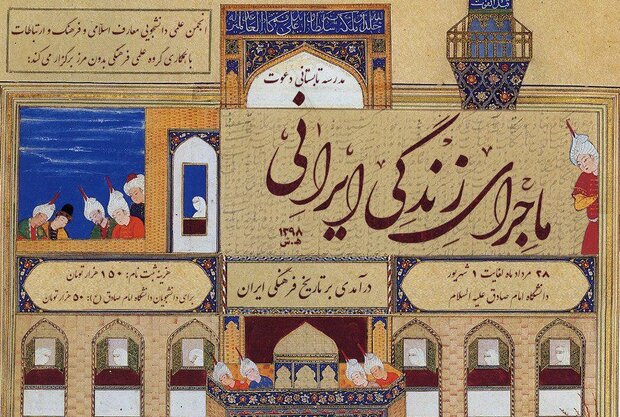 انجمن علمی دانشجویی معارف اسلامی و فرهنگ و ارتباطات
با همکاری گروه علمی فرهنگی بدون مرز برگزار می کند:
مدرسه تابستانی دعوت
ماجرای زندگی ایرانی
۱۳۹۸
ه.ش
درآمدی بر تاریخ فرهنگی ایران
۲۸ مرداد ماه لغایت ۱ شهریور
دانشگاه امام صادق علیه السلام
هزینه ثبت نام: ۱۵۰ هزار تومان
برای دانشجویان دانشگاه امام صادق (ع): ۵۰ هزار تومان